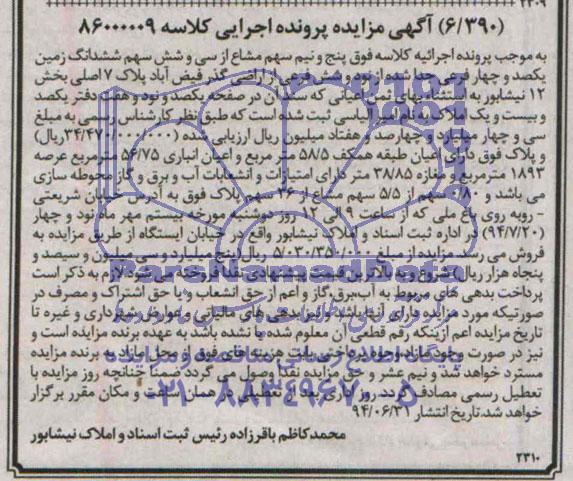 ۲۳۰۹
(۶/۳۹۰) آگهی مزایده پرونده اجرایی کلاسه ۸۶۰۰۰۰۰۹
به موجب پرونده اجرائیه کلاسه فوق پنج و نیم سهم مشاع از سی و شش سهم ششدانگ زمین
یکصد و چهار فرعی جدا شده از نود و شش فرعی از اراضی گذر فیض آباد پلاک ۷ اصلی بخش
۱۲ نیشابور به استثنای بهای ثمن اعیانی که سند آن در صفحه یکصد و نود و هفت دفتر یکصد
و بیست و یک املاک به نام امیر الیاسی ثبت شده است که طبق نظر کارشناس رسمی به مبلغ
سی و چهار میلیارد و چهارصد و هفتاد میلیون ریال ارزیابی شده (۳۴/۴۷۰/۰۰۰/۰۰۰ریال)
و پلاک فوق دارای اعیان طبقه همکف ۵۸/۵ متر مربع و اعیان انباری ۵۶/۷۵ مترمربع عرصه
۱۸۹۳ مترمربع و مغازه ۳۸/۸۵ متر دارای امتیازات و انشعابات آب و برق و گاز و محوطه سازی
می باشد و ۰/۸۰ سهم از ۵/۵ سهم مشاع از ۳۶ سهم پلاک فوق به آدرس خیابان شریعتی
- روبه روی باغ ملی که از ساعت ۹ الی ۱۲ روز دوشنبه مورخه بیستم مهر ماه نود و چهار
(۹۴/۷/۲۰) در اداره ثبت اسناد و املاک نیشابور واقع در خیابان ایستگاه از طریق مزایده به
فروش می رسد. مزایده از مبلغ ۵/۰۳۰/۳۵۰/۰۰۰ ریال (پنج میلیارد و سی میلیون و سیصد و
پنجاه هزار ریال) شروع و به بالاترین قیمت پیشنهادی نقدا فروخته می شود. لازم به ذکر است
پرداخت بدهی های مربوط به آب، برق، گاز و اعم از حق انشعاب و یا حق اشتراک و مصرف در
صورتیکه مورد مزایده دارای آنها باشد و نیز بدهی های مالیاتی و عوارض شهرداری و غیره تا
تاریخ مزایده اعم از اینکه رقم قطعی آن معلوم شده یا نشده باشد به عهده برنده مزایده است و
نیز در صورت وجود مازاد، وجوه پرداختی بابت هزینه های فوق از محل مازاد به برنده مزایده
مسترد خواهد شد و نیم عشر و حق مزایده نقدا وصول می گردد ضمنا چنانچه روز مزایده با
تعطیل رسمی مصادف گردد روز اداری بعد از تعطیلی در همان ساعت و مکان مقرر برگزار
خواهد شد.تاریخ انتشار ۹۴/۰۶/۳۱
محمدکاظم باقرزاده رئیس ثبت اسناد و املاک نیشابور
۲۳۱۰
پایگاه اطلاع رسانی مناقصه و مزایده
۰۲۱-۸۸۳۴۹۶۷۰-۵